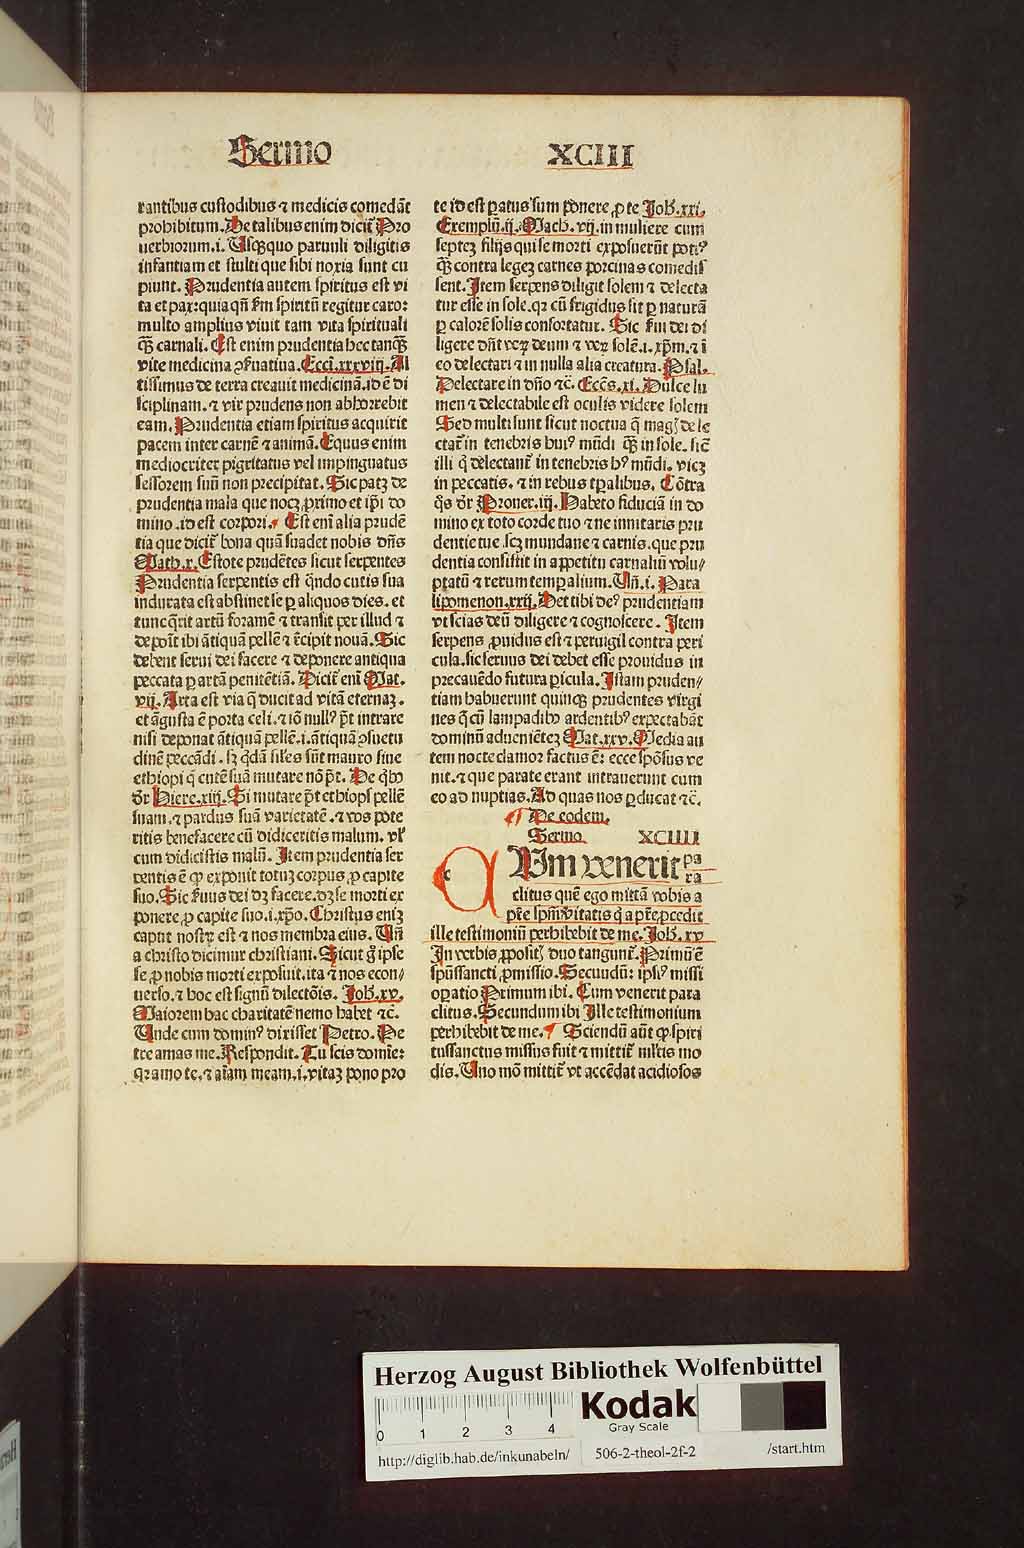 Sermo XCIII
rantibus custodibus ⁊ medicis comedāt
prohibitum. De talibus enim dicit̄ Pro
uerbiorum.i. Usq̄quo paruuli diligitis
infantiam et stulti que sibi noxia sunt cu
piunt. Prudentia autem spiritus est vi
ta et pax: quia qn̄ fm spiritū regitur caro:
multo amplius viuit tam vita spirituali
q̄ꝫ carnali. Est enim prudentia hec tanq̄ꝫ
vite medicina ꝯseruatiua. Eccī.xxxviij. Al
tissimus de terra creauit medicinā.id ē di
sciplinam. ⁊ vir prudens non abhorrebit
eam. Prudentia etiam spiritus acquirit
pacem inter carnē ⁊ animā. Equus enim
mediocriter pigritatus vel impinguatus
sessorem suū non precipitat. Sic patꝫ de
prudentia mala que nocꝫ ꝓximo et ip̄i do
mino.id est corpori. Est eni alia prudē
tia que dicit̄ bona quā suadet nobis dn̄s
Math.x. Estote prudētes sicut serpentes
Prudentia serpentis est q̄ndo cutis sua
indurata est abstinet se ꝑ aliquos dies. et
tunc q̄rit artū foramē ⁊ transit per illud ⁊
deponit ibi ātiquā pellē ⁊ recipit nouā. Sic
debent serui dei facere ⁊ deponere antiqua
peccata ꝑ artā penitētiā. Dicit̄ eni Mat.
vij. Arta est via q̄ ducit ad vitā eternaꝫ.
et āgusta ē porta celi. ⁊ iō nullꝰ pt̄ intrare
nisi deponat ātiquā pellē.i.ātiquā ꝯsuetu
dinē peccādi. sꝫ q̄dā siles sūt mauro siue
ethiopi q̄ cutē suā mutare nō pn̄t. De qbꝰ
dr̄ Hiere.xiij. Si mutare pt̄ ethiops pellē
suam. ⁊ pardus suā varietatē. ⁊ vos pote
ritis benefacere cū didiceritis malum. vl̄
cum didicistis malū. Item prudentia ser
pentis ē ꝙ exponit totuꝫ corpus ꝓ capite
suo. Sic seruus dei dꝫ facere. dꝫ se morti ex
ponere ꝓ capite suo.i.xp̄o. Christus eniꝫ
caput nostrꝫ est ⁊ nos membra eius. Un̄
a christo dicimur christiani. Sicut gͦ ipse
se ꝓ nobis morti exposuit.ita ⁊ nos econ⸗
uerso. ⁊ hoc est signū dilectōis. Joh̄.xv.
Maiorem hac charitatē nemo habet ⁊c̄.
Unde cum dominꝰ dixisset Petro. Pe
tre amas me. Respondit. Tu scis domīe:
qꝛ amo te. ⁊ aīam meam.i.vitaꝫ pono pro
te id est ꝑatus sum ponere ꝓ te Joh̄.xxi.
Exemplū.ij. Mach.vij. in muliere cum
septeꝫ filijs qui se morti exposuerūt potiꝰ
q̄ꝫ contra legeꝫ carnes porcinas comedis
sent. Item serpens diligit solem ⁊ delecta
tur esse in sole. qꝛ cū frigidus sit ꝑ naturā
ꝑ calorē solis confortatur. Sic serui dei di
ligere dn̄t veꝝ deum ⁊ veꝝ solē.i.xp̄m. ⁊ ī
eo delectari ⁊ in nulla alia creatura. Psal.
Delectare in dn̄o ⁊c̄. Eccēs.xi. Dulce lu
men ⁊ delectabile est oculis videre solem
Sed multi sunt sicut noctua q̄ magꝭ dele
ctat̄ in tenebris huiꝰ mūdi q̄ꝫ in sole. sic̄
illi q̄ delectant̄ in tenebris hꝰ mūdi. vicꝫ
in peccatis. ⁊ in rebus tp̄alibus. Cōtra
q̄s dr̄ Prouer.iij. Habeto fiduciā in do
mino ex toto corde tuo ⁊ ne innitaris pru
dentie tue. scꝫ mundane ⁊ carnis. que pru
dentia consistit in appetitu carnaliū volu⸗
ptatū ⁊ rerum temꝑalium. Un̄.i. Para
lipomenon.xxij. Det tibi deꝰ prudentiam
vt scias deū diligere ⁊ cognoscere. Item
serpens ꝓuidus est ⁊ peruigil contra peri
cula. sic seruus dei debet esse prouidus in
precauēdo futura ꝑicula. Istam pruden⸗
tiam habuerunt quinqꝫ prudentes virgi
nes q̄ cū lampadibꝰ ardentibꝰ expectabāt
dominū aduenientē Mat.xxv. Media au
tem nocte clamor factus ē: ecce spōsus ve
nit. ⁊ que parate erant intrauerunt cum
eo ad nuptias. Ad quas nos ꝑducat ⁊c̄.
De eodem.
Sermo XCIIII
CUm venerit pa
ra
clitus quē ego mittā vobis a
pr̄e spm̄ v̄itatis q̄ a pr̄e ꝓcedit
ille testimoniū perhibebit de me. Joh̄.xv
In verbis ꝓpositꝭ duo tangunt̄. Primū ē
spūssancti ꝓmissio. Secundū: ipsiꝰ missi
oꝑatio Primum ibi. Cum venerit para
clitus. Secundum ibi Ille testimonium
perhibebit de me. Sciendū aūt ꝙ spiri
tussanctus missus fuit ⁊ mittit̄ ml̄tis mo
dis. Uno mō mittit̄ vt accēdat acidiosos
Herzog August Bibliothek Wolfenbüttel
0 1 2 3 4
Kodak
Gray Scale
http://diglib.hab.de/inkunabeln/ 506-2-theol-2f-2 /start.htm